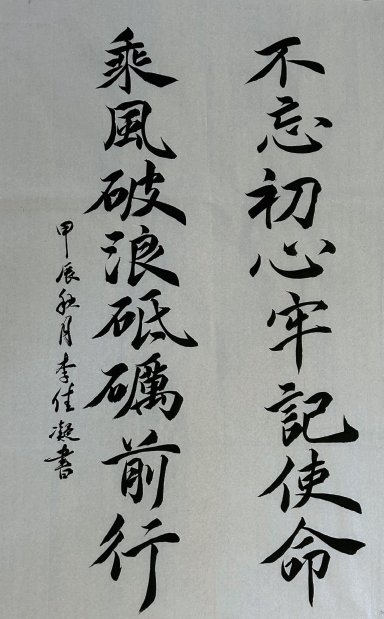 不忘初心牢記使命
乘風破浪砥礪前行
甲辰秋月李佳凝書